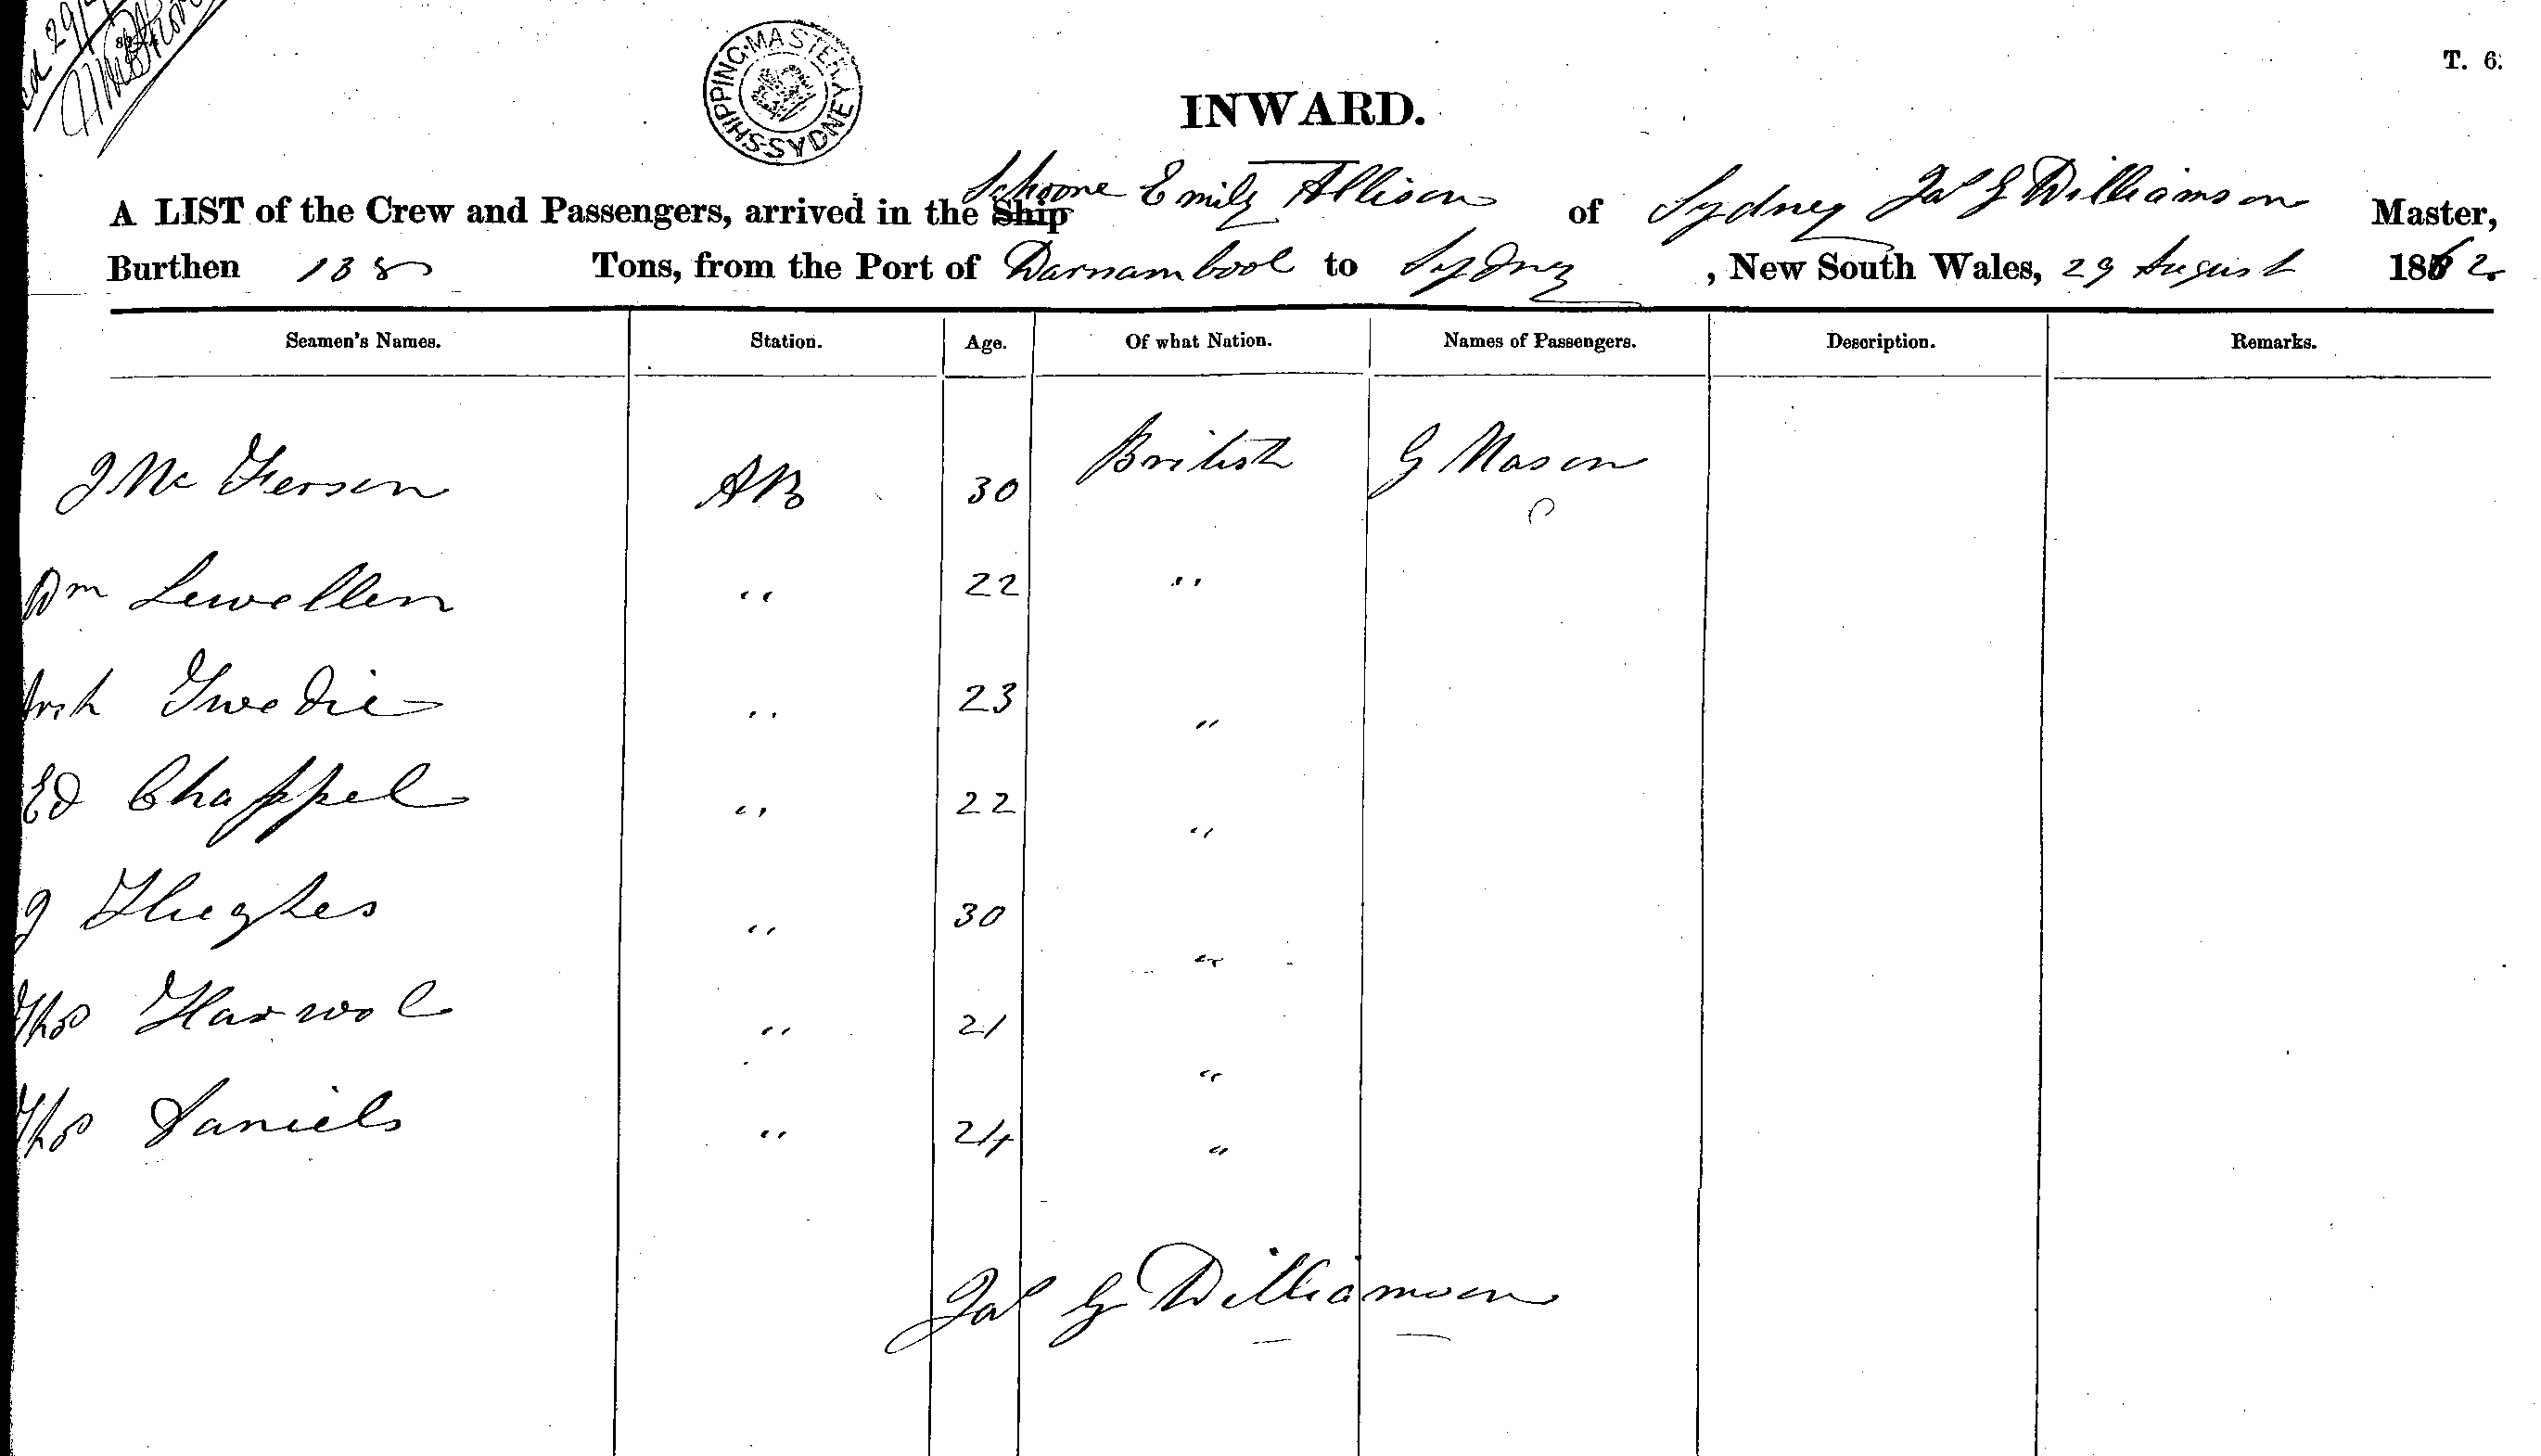 SHIPPING MASTER SYDNEY
T. 6.
INWARD.
A LIST of the Crew and Passengers, arrived in the Ship Schoone Emily Allison of Sydney Jas G Williamson Master,
Burthen 138 Tons, from the Port of Warnambool to Sydney, New South Wales, 29 August 1862
Seamen's Names. Station. Age. Of what Nation. Names of Passengers. Description. Remarks.
J Mc Ferson AB 30 British G Mason
Wm Lewellen " 22 "
Arch Twedie " 23 "
Ed Chappel " 22 "
J Hughes " 30 "
Thos Harwol " 21 "
Thos Daniels " 24 "
Jas G Williamson